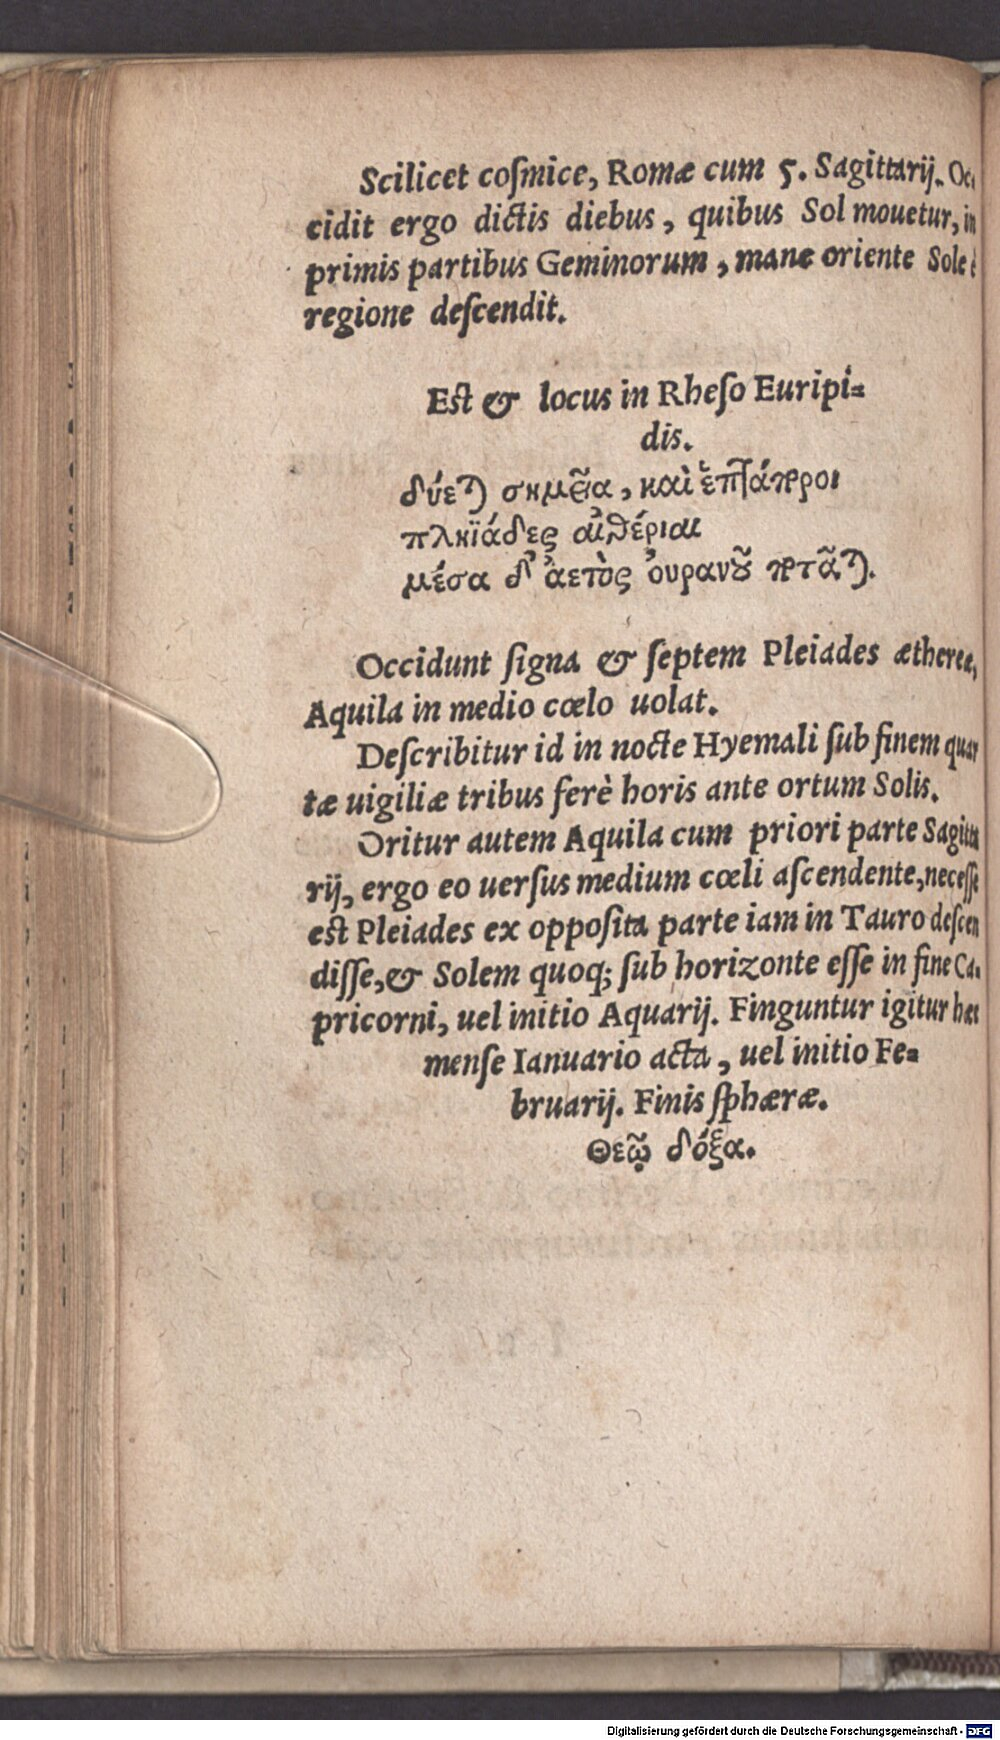 Scilicet coſmice, Romæ cum 5. Sagittarij. Oc⸗
cidit ergo dictis diebus, quibus Sol mouetur, in
primis partibus Geminorum, mane oriente Sole è
regione deſcendit.
Est & locus in Rheſo Euripi⸗
dis.
δύεται σημεῖα, καὶ ἑπτάποροι
πληϊάδες αἰθέριαι
μέσα δ' ἀετὸς ὀυρανοῦ ποτᾶται.
Occidunt ſigna & ſeptem Pleiades æthereæ,
Aquila in medio cœlo uolat.
Deſcribitur id in nocte Hyemali ſub finem quar
tæ uigiliæ tribus ferè horis ante ortum Solis.
Oritur autem Aquila cum priori parte Sagitta
rij, ergo eo uerſus medium cœli aſcendente, neceſſe
est Pleiades ex oppoſita parte iam in Tauro deſcen
diſſe, & Solem quoq; ſub horizonte eſſe in fine Ca⸗
pricorni, uel initio Aquarij. Finguntur igitur hæc
menſe Ianuario acta, uel initio Fe⸗
bruarij. Finis ſphæræ.
Θεῷ δόξα.
Digitalisierung gefördert durch die Deutsche Forschungsgemeinschaft - DFG